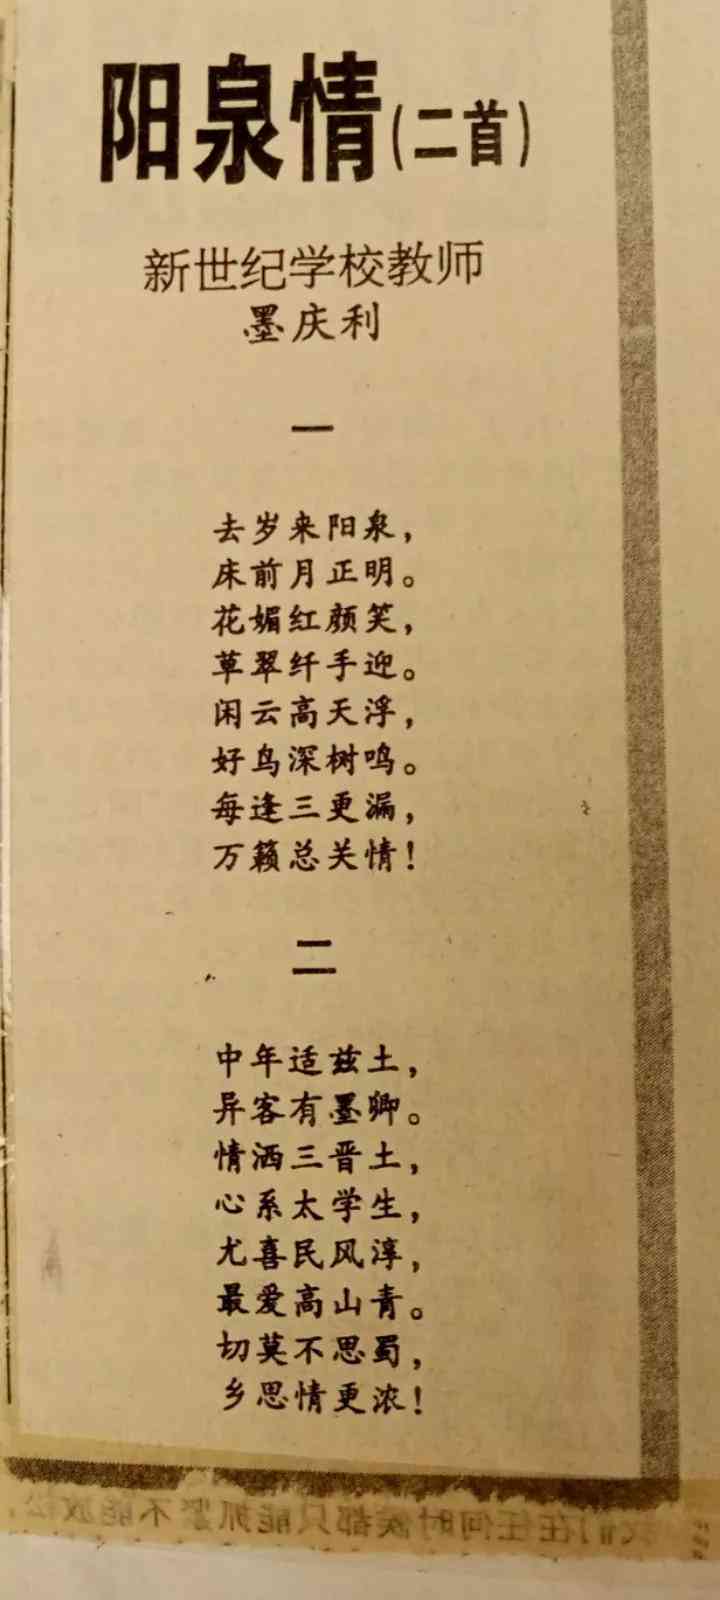 阳泉情(二首)
新世纪学校教师
墨庆利
一
去岁来阳泉，
床前月正明。
花媚红颜笑，
草翠纤手迎。
闲云高天浮，
好鸟深树鸣。
每逢三更漏，
万籁总关情！
二
中年适兹土，
异客有墨卿。
情洒三晋土，
心系太学生，
尤喜民风淳，
最爱高山青。
切莫不思蜀，
乡思情更浓！
我们在任何时候都只能抓紧不能放松，